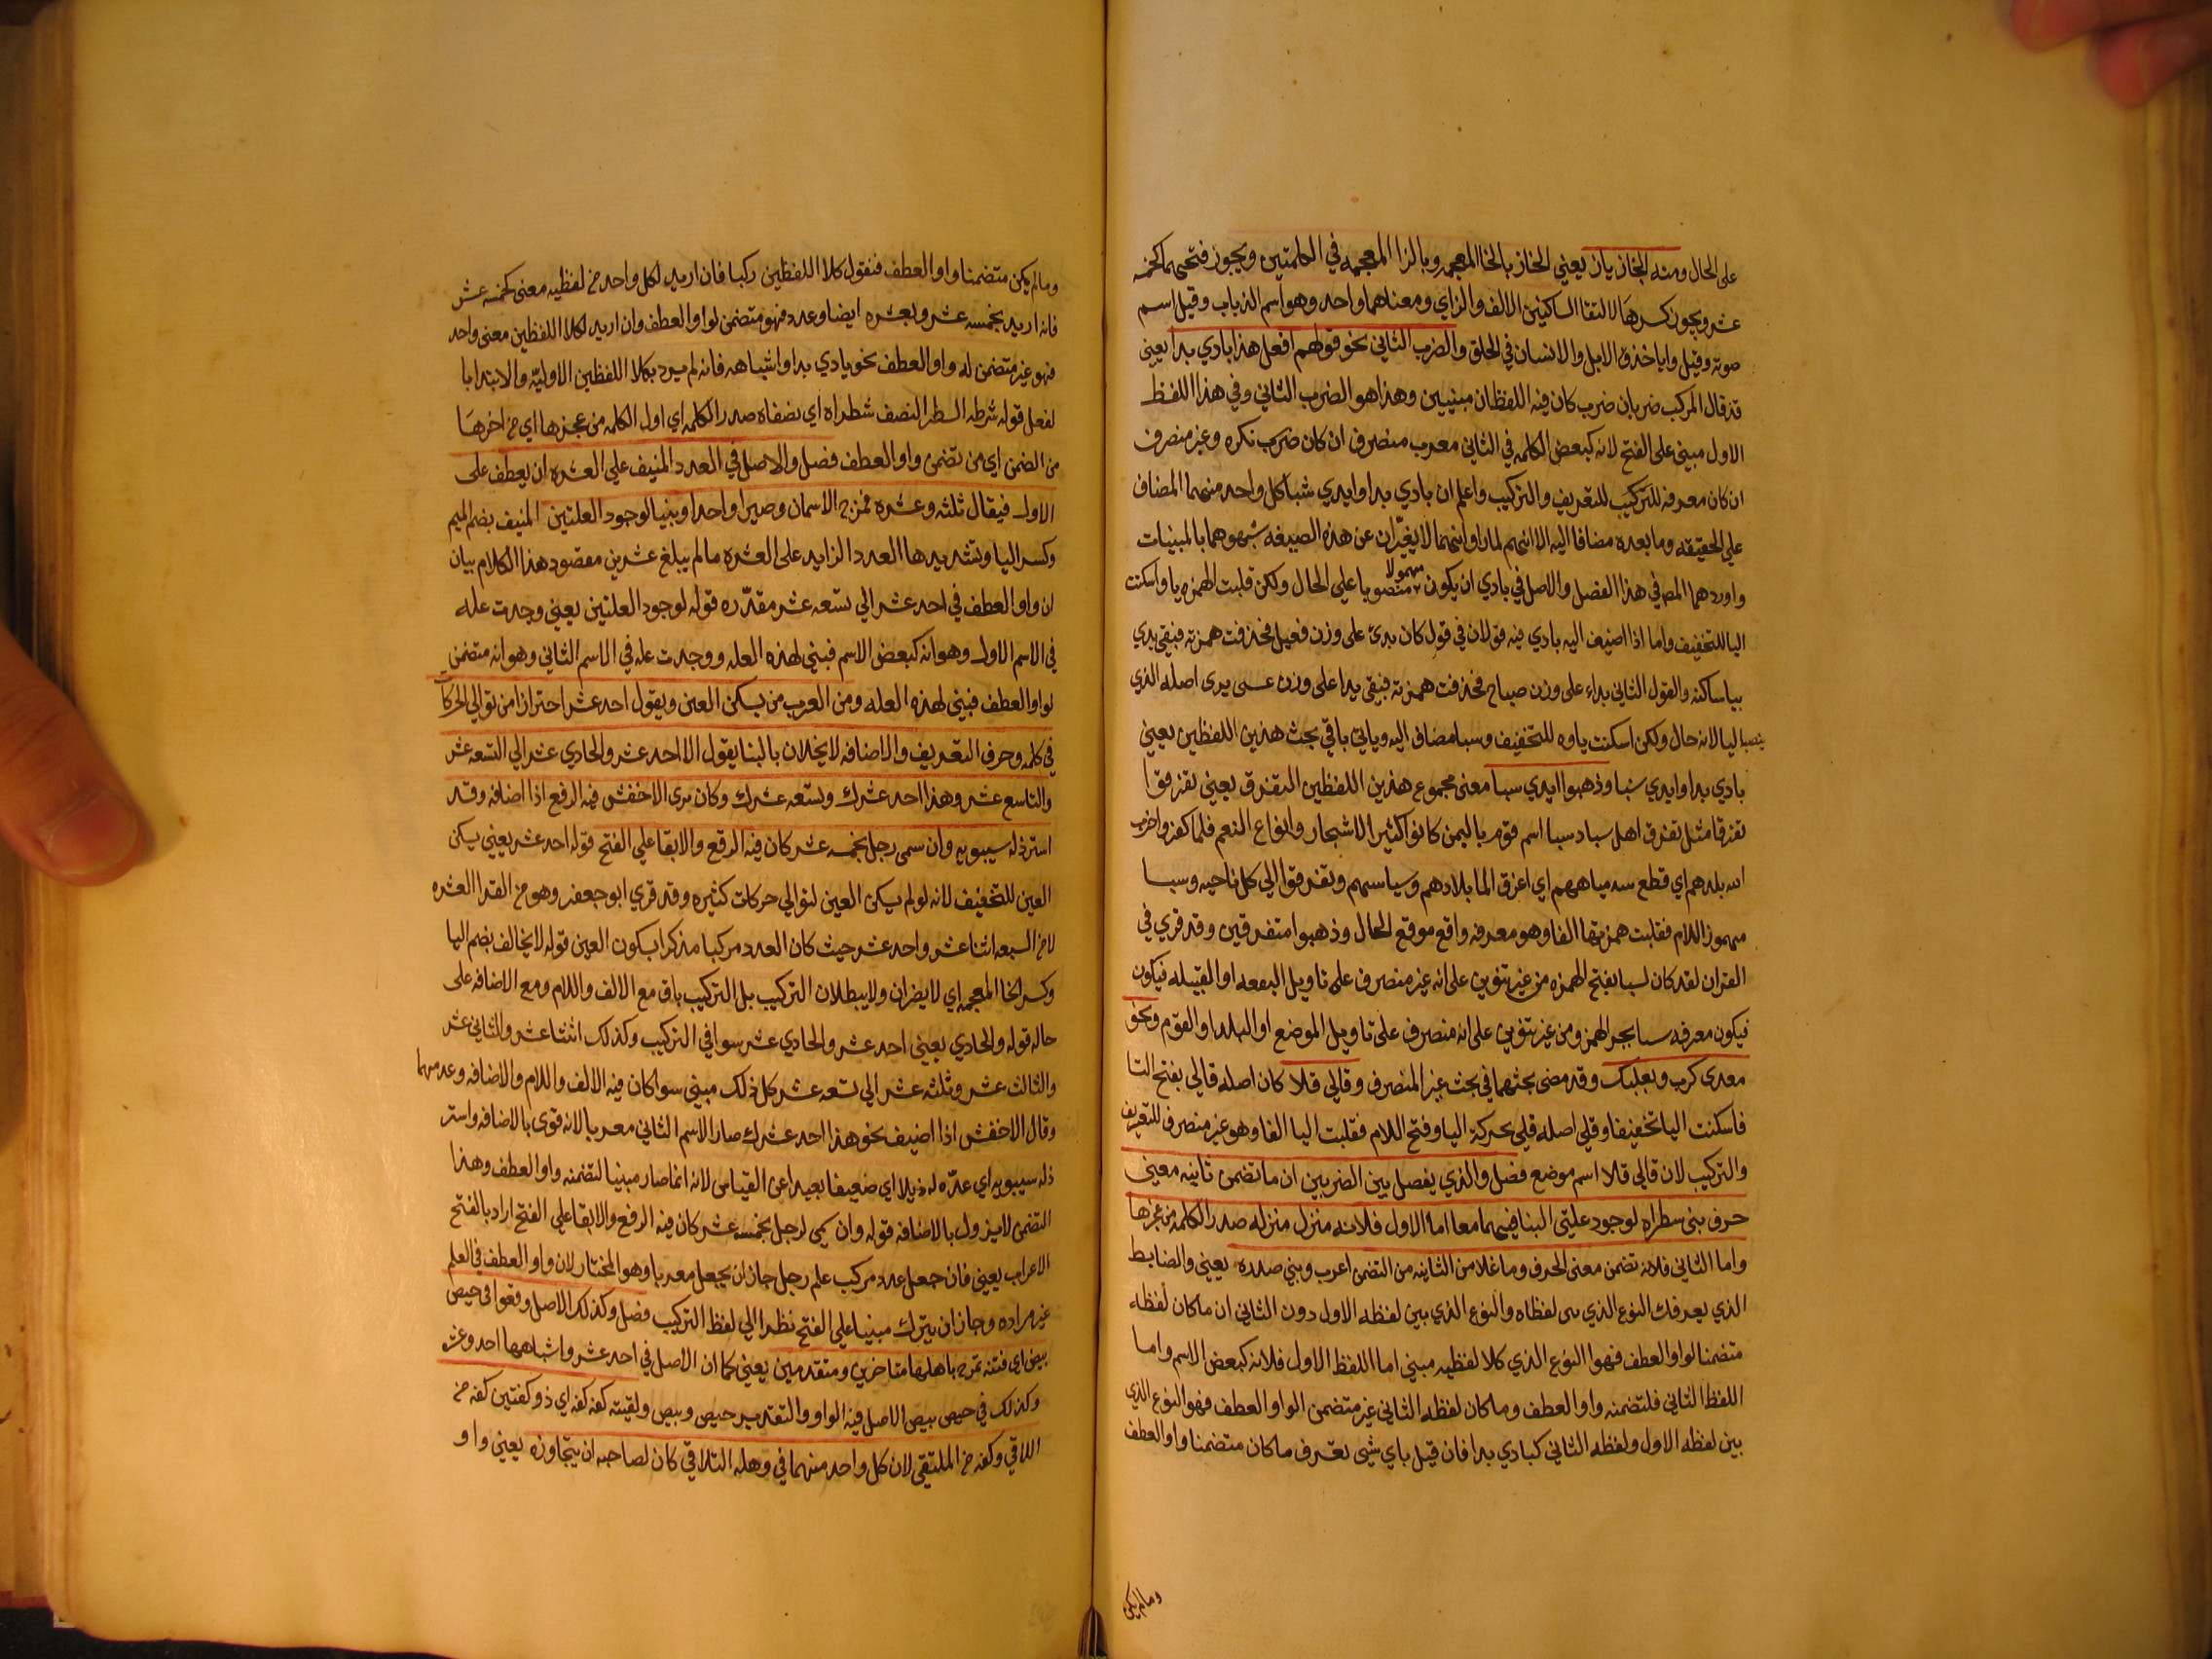 على الحال ومنه الخازبازن يعني الخاز بالخاالمعجمه وبالزا المعجمه في الكلمتين ويجوز فتحهما كخمسه
عشر ويجوز كسرها لالتقا الساكنين الالف والزاي ومعناهما واحد وهو اسم الذباب وقيل اسم
صوته وقيل داياخذ في الابل والانسان في الحلق والضرب الثاني نحو قولهم افعل هذا بادي بدا يعني
قد قال المركب ضربان ضرب كان فيه اللفظان مبنيين وهذا هو الضرب الثاني وفي هذا اللفظ
الاول مبني على الفتح لانه كبعض الكلمه في الثاني معرب منصرف ان كان ضرب نكره وغير منصرف
ان كان معرفه للتركيب للتعريف والتركيب واعلم ان بادي بدا وايدي سبا كل واحد منهما المضاف
علي الحقيقه وما بعده مضافا اليه الا انهم لما راوا انهما لا يغيّران عن هذه الصيغه شبهوهما بالمبنيات
واوردهما المص في هذا الفصل والاصل في بادي ان يكون مهمولا منصوبا على الحال ولكن قلبت الهمزه يا واسكنت
اليا للتخفيف واما اذا اضيف اليه بادي فيه قولان في قول كان بدئ على وزن فعيل فحذفت همزته فبقي بدي
بيا ساكنه والقول الثاني بداء على وزن صباح فحذفت همزته فبقي بدا على وزن عسى يرى اصله الذي
ينصبا ليا لانه حال ولكن اسكنت ياوه للتخفيف وسبا مضاف اليه وياتي باقي بحث هذين اللفظين يعني
بادي بدا وايدي سبا وذهبوا ايدي سبا معنى مجموع هذين اللفظين التفرق يعني تفرقوا
تفرقا مثل تفرق اهل سباد سبا اسم قوم باليمن كانوا كثير الاشجار وانواع النعم فلما كفروا خرب
الله بلدهم اي قطع سد مياههم اي اغرق الما بلادهم وسياسهم وتفرقوا الي كل ناحيه وسبا
مهموز اللام فقلبت همزتها الفا وهو معرفه واقع موقع الحال وذهبوا متفرقين وقد قري في
القران لقد كان لسبا بفتح الهمزه من غير تنوين على انه غير منصرف على تاويل البقعه او القبيله فيكون
فيكون معرفه سبا بجر الهمز ومن غير تنوين على انه منصرف على تاويل الموضع او البلد او القوم ونحو
معدى كرب وبعلبك وقد مضى بحثهما في بحث غير المنصرف وقالي قلا كان اصله قالي بفتح التا
فاسكنت اليا تخفيفا وقلي اصله قلي بحركة اليا وفتح اللام فقلبت اليا الفا وهو غير منصرف للتعريف
والتركيب لان قالي قلا اسم موضع فصل والذي يفصل بين الضربين ان ما تضمن ثانيه معنى
حرف بني سطراه لوجود علتي البنا فيهما معا اما الاول فلانه منزل منزله صدر الكلمه من عجزها
واما الثاني فلانه تضمن معنى الحرف وما خلا من الثانيه من التضمن اعرب وبني صدره يعني والضابط
الذي يعرفك النوع الذي بني لفظاه والنوع الذي بين لفظه الاول دون الثاني ان ما كان لفظاء
متضمنا لواو العطف فهوا النوع الذي كلا لفظيه مبني اما اللفظ الاول فلانه كبعض الاسم واما
اللفظ الثاني فلتضمنه واو العطف وما كان لفظه الثاني غير متضمن الواو العطف فهو النوع الذي
بين لفظه الاول ولفظه الثاني كبادي بدا فان قيل باي شي تعرف ما كان متضمنا واو العطف
وما لم يكن
وما لم يكن متضمنا واو العطف فنقول كلا اللفظين ركبا فان اريد لكل واحد من لفظيه معنى كخمسه عشر
فانه اريد بخمسه عشر وبعشره ايضا وعدد فهو متضمن لواو العطف وان اريد لكلا اللفظين معنى واحد
فهو غير متضمن له واو العطف نحو بادي بدا واشباهه فانه لم يرد بكلا اللفظين الاوليه والابتدا با
لفعل قوله شرطه السطر النصف شطراه اي نصفاه صدر الكلمه اي اول الكلمه من عجزها اي من اخرها
من الضمن اي من تضمن واو العطف فصل والاصل في العدد المنيف علي العشره ان يعطف على
الاول فيقال ثلثه وعشره فمزج الاسمان وصيرا واحدا وبنيا لوجود العلتين المنيف بضم الميم
وكسر اليا وتشديدها العدد الزايد على العشره ما لم يبلغ عشرين مقصود هذا الكلام بيان
ان واو العطف في احد عشر الي تسعه عشر مقدّره قوله لوجود العلتين يعني وجدت عله
في الاسم الاول وهو انه كبعض الاسم فبني لهذه العله ووجدت عله في الاسم الثاني وهو انه متضمن
لواو العطف فبني لهذه العله ومن العرب من يسكن العين ويقول احد عشر احترازا من توالي الحركا
في كلمه وحرف التعريف والاضافه لا يخلان بالبنا يقول الاحد عشر والحادي عشر الي التسعه عشر
والتاسع عشر وهذا احد عشرك وتسعه عشرك وكان يرى الاخفش فيه الرفع اذا اضافه وقد
استرذله سيبويه وان سمي رجل بخمسه عشر كان فيه الرفع والابقا علي الفتح قوله احد عشر يعني يسكن
العين للتخفيف لانه لو لم يسكن العين لتوالي حركات كثيره وقد قري ابو جعفر وهو من القرا العشره
لا من السبعه اثنا عشر واحد عشر حيث كان العدد مركبا مذكرا بسكون العين قوله لا يخالف بضم اليا
وكسر الخا المعجمه اي لا يضران ولا يبطلان التركيب بل التركيب باق مع الالف واللام ومع الاضافه على
حاله قوله والحادي يعني احد عشر والحادي عشر سوا في التركيب وكذلك اثنتا عشر والثاني عشر
والثالث عشر وثلثه عشر الي تسعه عشر كل ذلك مبني سوا كان فيه الالف واللام والاضافه وعدمهما
وقال الاخفش اذا اضيف نحو هذا احد عشرك صار الاسم الثاني معربا لانه قوي بالاضافه واستر
ذله سيبويه اي عدّه له ذيلا اي ضعيفا بعيدا عن القياس لانه انما صار مبنيا لتضمنه واو العطف وهذا
التضمن لا يزول بالاضافه قوله وان سمي لرجل بخمسه عشر كان فيه الرفع والابقا على الفتح اراد بالفتح
الاعراب يعني فان جعل عدد مركب علم رجل جاز ان يجعل معربا وهو المختار لان واو العطف في العلم
غير مراده وجاز ان يترك مبنيا على الفتح نظرا الي لفظ التركيب فصل وكذلك الاصل وقعوا في حيص
بيص اي فتنه تمرح باهلها متاخرين ومتقدمين يعني كما ان الاصل في احد عشر واشباهها احد وعشر
وكذلك في حيص بيص الاصل فيه الواو والتقدير حيص وبيص ولقيته كفه كفه اي ذو كفتين كفه من
اللاقي وكفه من الملتقي لان كل واحد منهما في وهله التلاقي كان لصاحبه ان يتجاوزه يعني واو